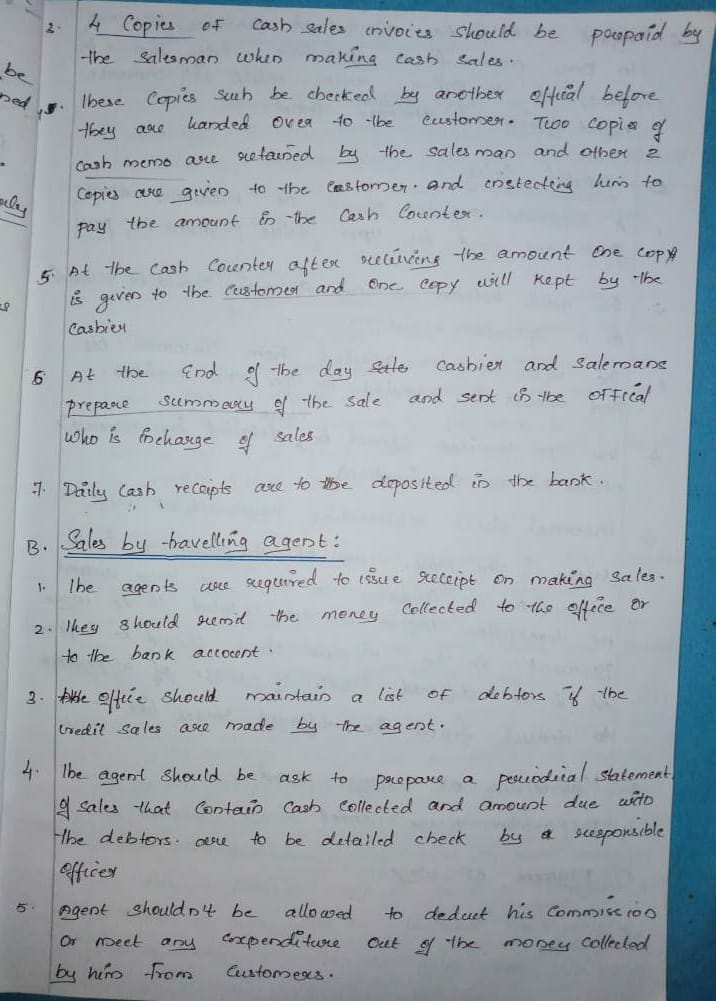 3. 4 Copies of cash sales invoies should be prepaid by
the salesman when making cash sales.
be
ned
These copies suh be checked by another offical before
they are handed over to the customer. Two copies of
cash memo are retained by the sales man and other 2
copies are given to the customer. and him to
pay the amount in the Cash Counter.
5. At the cash Counter after receiving the amount One copy
is given to the customer and one copy will kept by the
Cashier
6 At the End of the day cashier and Salemans
prepare summary of the sale and sent in the offical
who is incharge of sales
7. Daily cash receipts are to be deposited in the bank.
B. Sales by travelling agent:
1. The agents are required to issue receipt on making sales.
2. They should remid the money collected to the office or
to the bank account.
3. the office should maintain a list of debtors if the
credit sales are made by the agent.
4. The agent should be ask to prepare a periodical statement
of sales that contain cash collected and amount due
the debtors. are to be detailed check by a responsible
officer
5. Agent shouldn't be allowed to deduct his commission
or meet any expenditure out of the money collected
by him from customers.